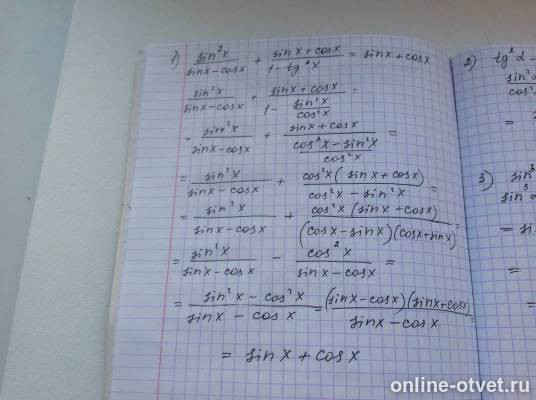 1) sin²x/(sinx-cosx) + (sinx+cosx)/(1-tg²x) = sinx+cosx
sin²x/(sinx-cosx) + (sinx+cosx)/(1-sin²x/cos²x) =
= sin²x/(sinx-cosx) + (sinx+cosx)/((cos²x-sin²x)/cos²x) =
= sin²x/(sinx-cosx) + cos²x(sinx+cosx)/(cos²x-sin²x) =
= sin²x/(sinx-cosx) + cos²x(sinx+cosx)/((cosx-sinx)(cosx+sinx)) =
= sin²x/(sinx-cosx) - cos²x/(sinx-cosx) =
= (sin²x-cos²x)/(sinx-cosx) = (sinx-cosx)(sinx+cosx)/(sinx-cosx) =
= sinx+cosx
2) tg²α -
3) sin³
sin³
online-otvet.ru